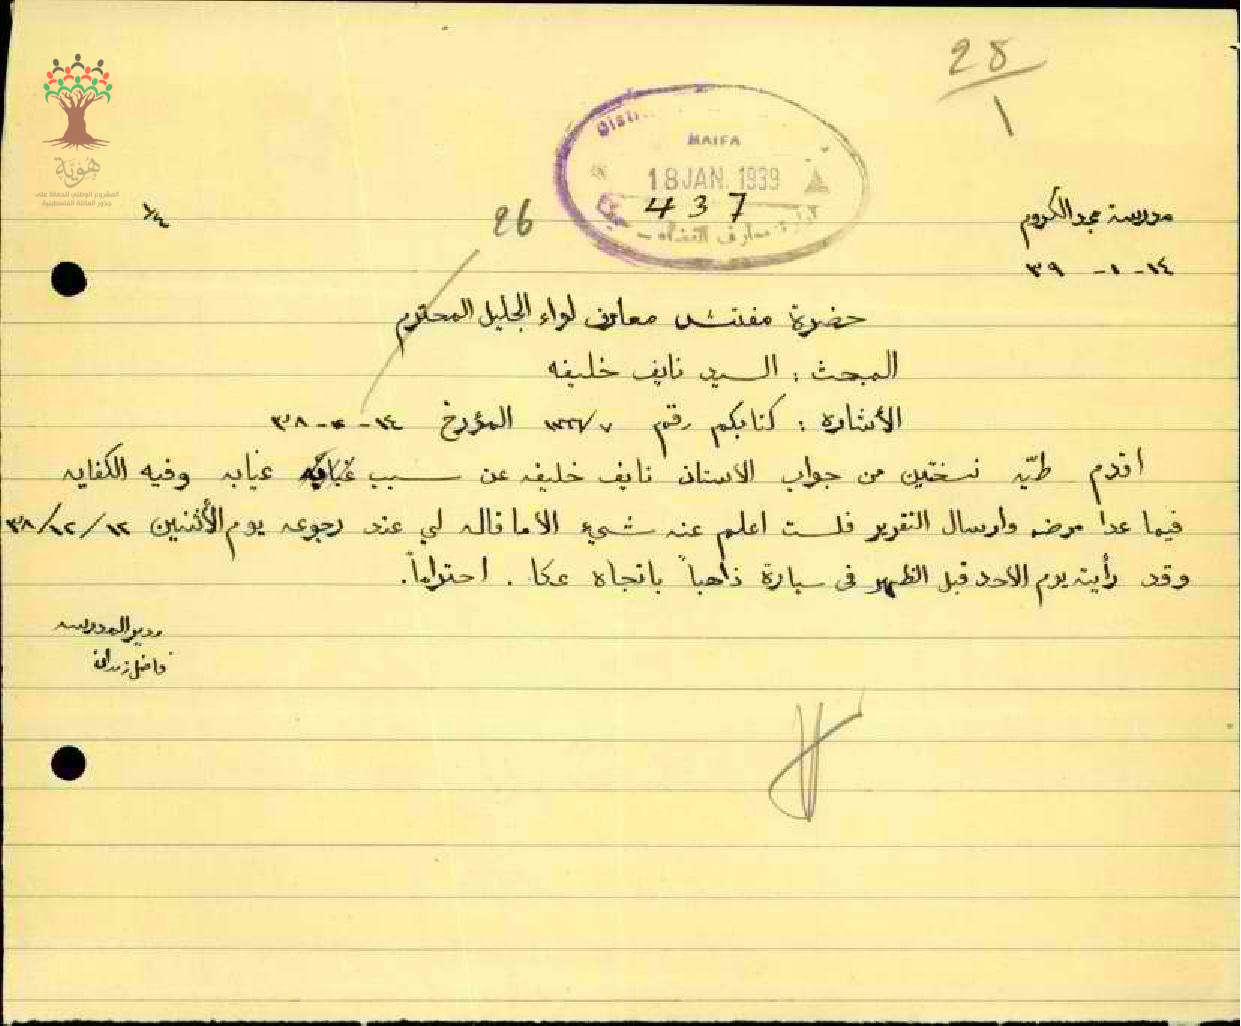 28
1
HAIFA
18 JAN. 1939
437
26
هوية
المشروع الوطني للحفاظ على
جذور العائلة الفلسطينية
مدرسة مجد الكروم
١٤ - ١ - ٣٩
حضرة مفتش معارف لواء الجليل المحترم
المبحث : السيد نايف خليفه
الأشارة : كتابكم رقم المؤرخ
اقدم طيّه نسختين من جواب الأستاذ نايف خليفه عن سبب غيابه وفيه الكفايه
فيما عدا مرضه وارسال التقرير فلست اعلم عنه شيء الا ما قاله لي عند رجوعه يوم الأثنين ١٢/١٢/٣٨
وقد رأيته يوم الأحد قبل الظهر في سيارة ذاهباً باتجاه عكا . احتراماً.
مدير المدرسه
فاضل زيدان